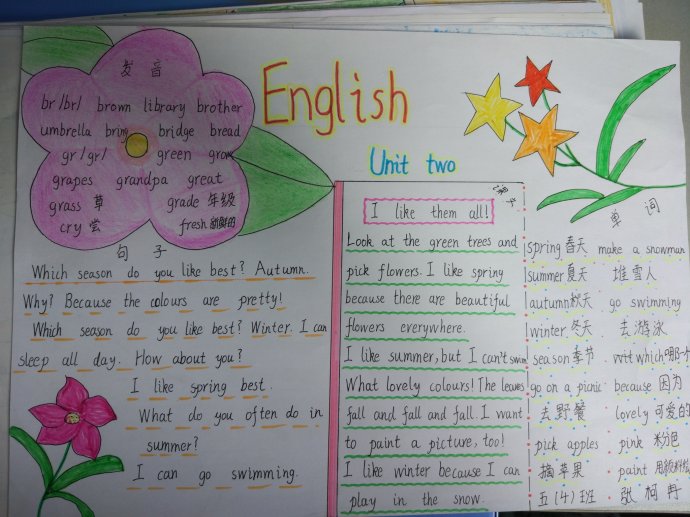 English
Unit two
发音
br/br/ brown library brother
umbrella bring bridge bread
gr/gr/ green grow
grapes grandpa great
grass 草 grade 年级
cry 尝 fresh 新鲜的
句子
Which season do you like best? Autumn.
Why? Because the colours are pretty!
Which season do you like best? Winter. I can
sleep all day. How about you?
I like spring best.
What do you often do in
summer?
I can go swimming.
I like them all!
Look at the green trees and
pick flowers. I like spring
because there are beautiful
flowers everywhere.
I like summer, but I can't swim
What lovely colours! The leaves
fall and fall and fall. I want
to paint a picture, too!
I like winter because I can
play in the snow.
单词
spring 春天 make a snowman
summer 夏天 堆雪人
autumn 秋天 go swimming
winter 冬天 去游泳
season 季节 which 哪一个
go on a picnic because 因为
去野餐 lovely 可爱的
pick apples pink 粉色
摘苹果 paint
五(4)班 张柯冉